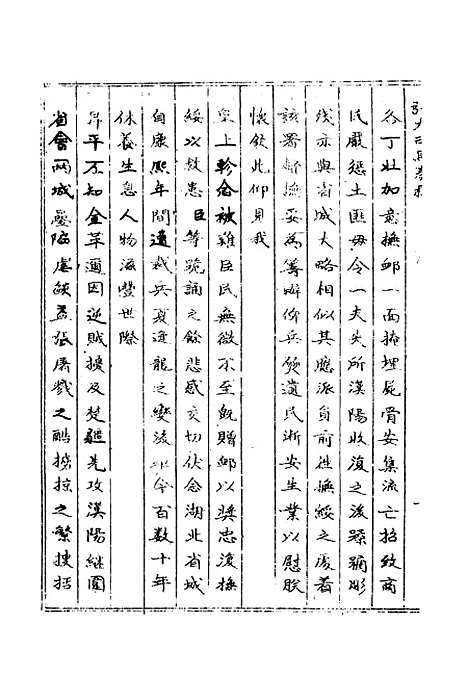 各丁壯加意撫卹一面掩埋屍骨安集流亡招致商
民嚴懲土匪毋令一夫失所漢陽收復之後蹂躪形
殘亦與省城大略相似其應派員前徃撫綏之處着
該署督撫妥為籌辦俾兵燹遺民漸安生業以慰朕
懷欽此仰見我
皇上軫念被難臣民無微不至旣贈卹以奬忠復撫
綏以救患臣等跪誦之餘悲感交切伏念湖北省城
自康熙年間遭裁兵夏逢龍之變後迄今百數十年
休養生息人物滋豐世際
昇平不知金革邇因逆賊擾及楚疆先攻漢陽繼圍
省會兩城疊陷虐燄益張屠戮之酷擄掠之繁搜括